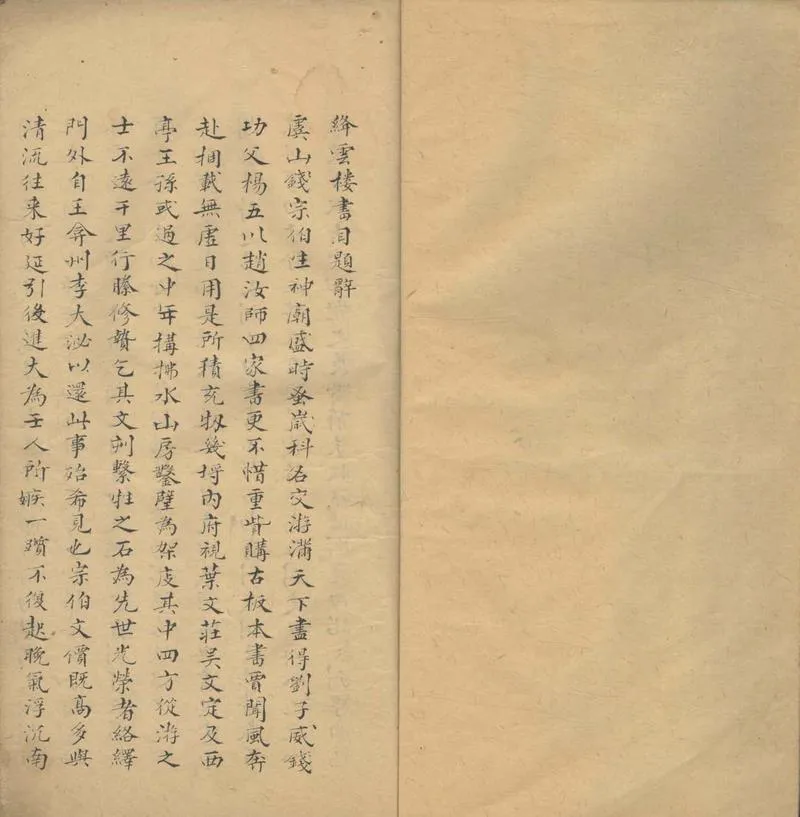 絳雲楼書目題辭
虞山錢宗伯生神廟盛時蚤歲科名交游滿天下盡得劉子威錢
功父楊五川趙汝師四家書更不惜重貲購古板本書賈聞風奔
赴捆載無虛日用是所積充牣幾埒內府視葉文莊吴文定及西
亭王孫或過之中年構拂水山房鑿壁為架庋其中四方從游之
士不遠千里行縢修贄乞其文刻繫牲之石為先世光榮者絡繹
門外自王弇州李大泌以還此事殆希見也宗伯文價既高多與
清流往来好延引後進大為壬人所嫉一躓不復起晚氣浮沉南